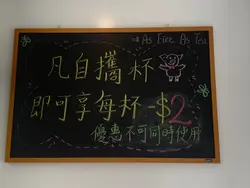 As Free As Tea
凡自攜杯
即可享每杯-$2
優惠不可同時使用